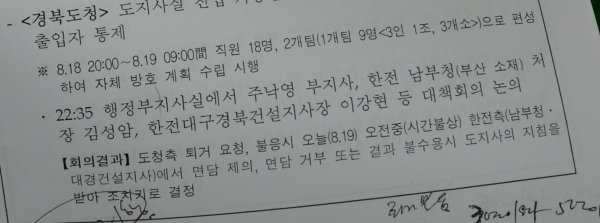 - <경북도청> 도지사실 진입
출입자 통제
※ 8.18 20:00~8.19 09:00間 직원 18명, 2개팀(1개팀 9명<3인 1조, 3개소>)으로 편성
하여 자체 방호 계획 수립 시행
· 22:35 행정부지사실에서 주낙영 부지사, 한전 남부청(부산 소재) 처
장 김성암, 한전대구경북건설지사장 이강현 등 대책회의 논의
【회의결과】 도청측 퇴거 요청, 불응시 오늘(8.19) 오전중(시간불상) 한전측(남부청·
대경건설지사)에서 면담 제의, 면담 거부 또는 결과 불수용시 도지사의 지침을
받아 조치키로 결정